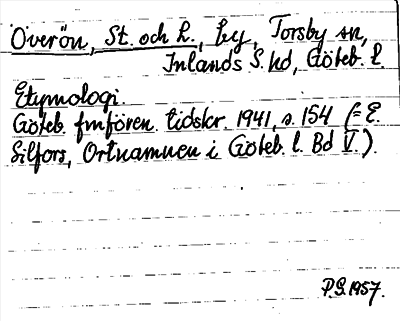 Överön, St. och L., by, Torsby sn,
Inlands S. hd, Göteb. l.
Etymologi.
Göteb. fmfören. tidskr. 1941, s. 154 (= E.
Silfors, Ortnamnen i Göteb. l. Bd V.).
P.G. 1957.